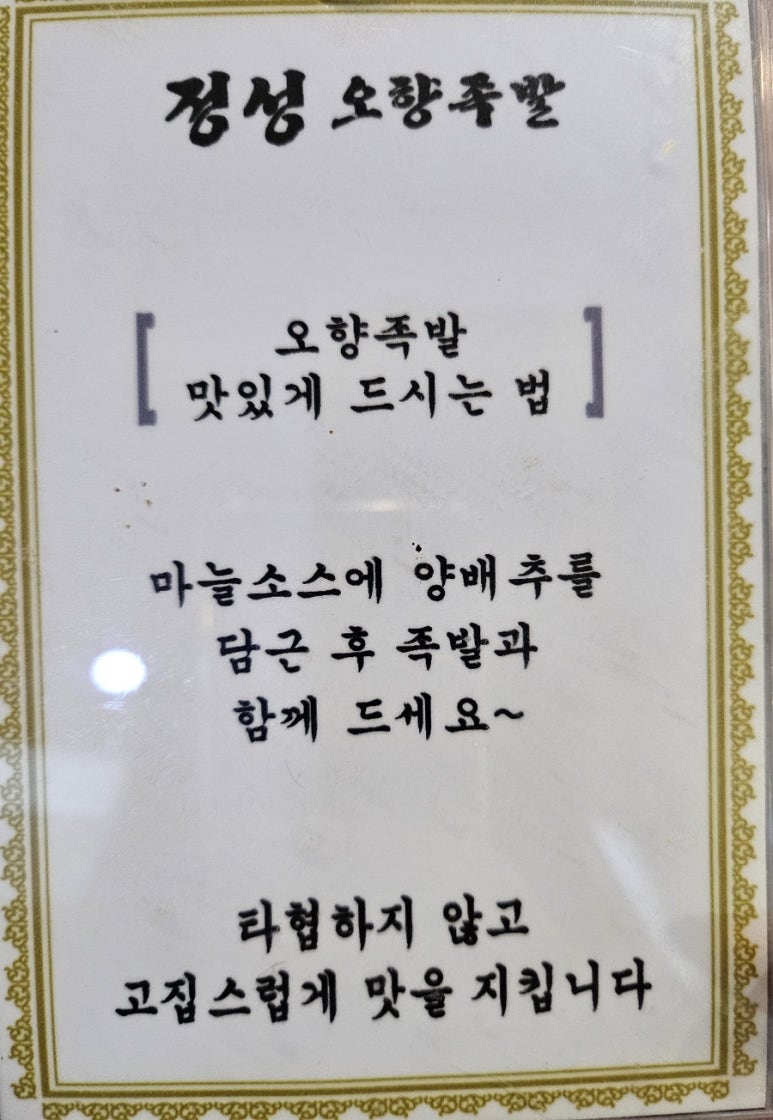 정성 오향족발
오향족발
맛있게 드시는 법
마늘소스에 양배추를
담근 후 족발과
함께 드세요~
타협하지 않고
고집스럽게 맛을 지킵니다